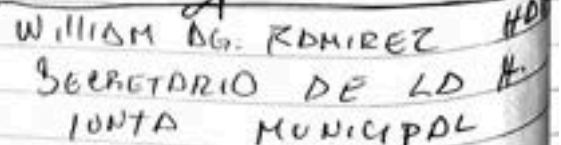 WILLIAM AG. RAMIREZ
SECRETARIO DE LA H.
JUNTA MUNICIPAL